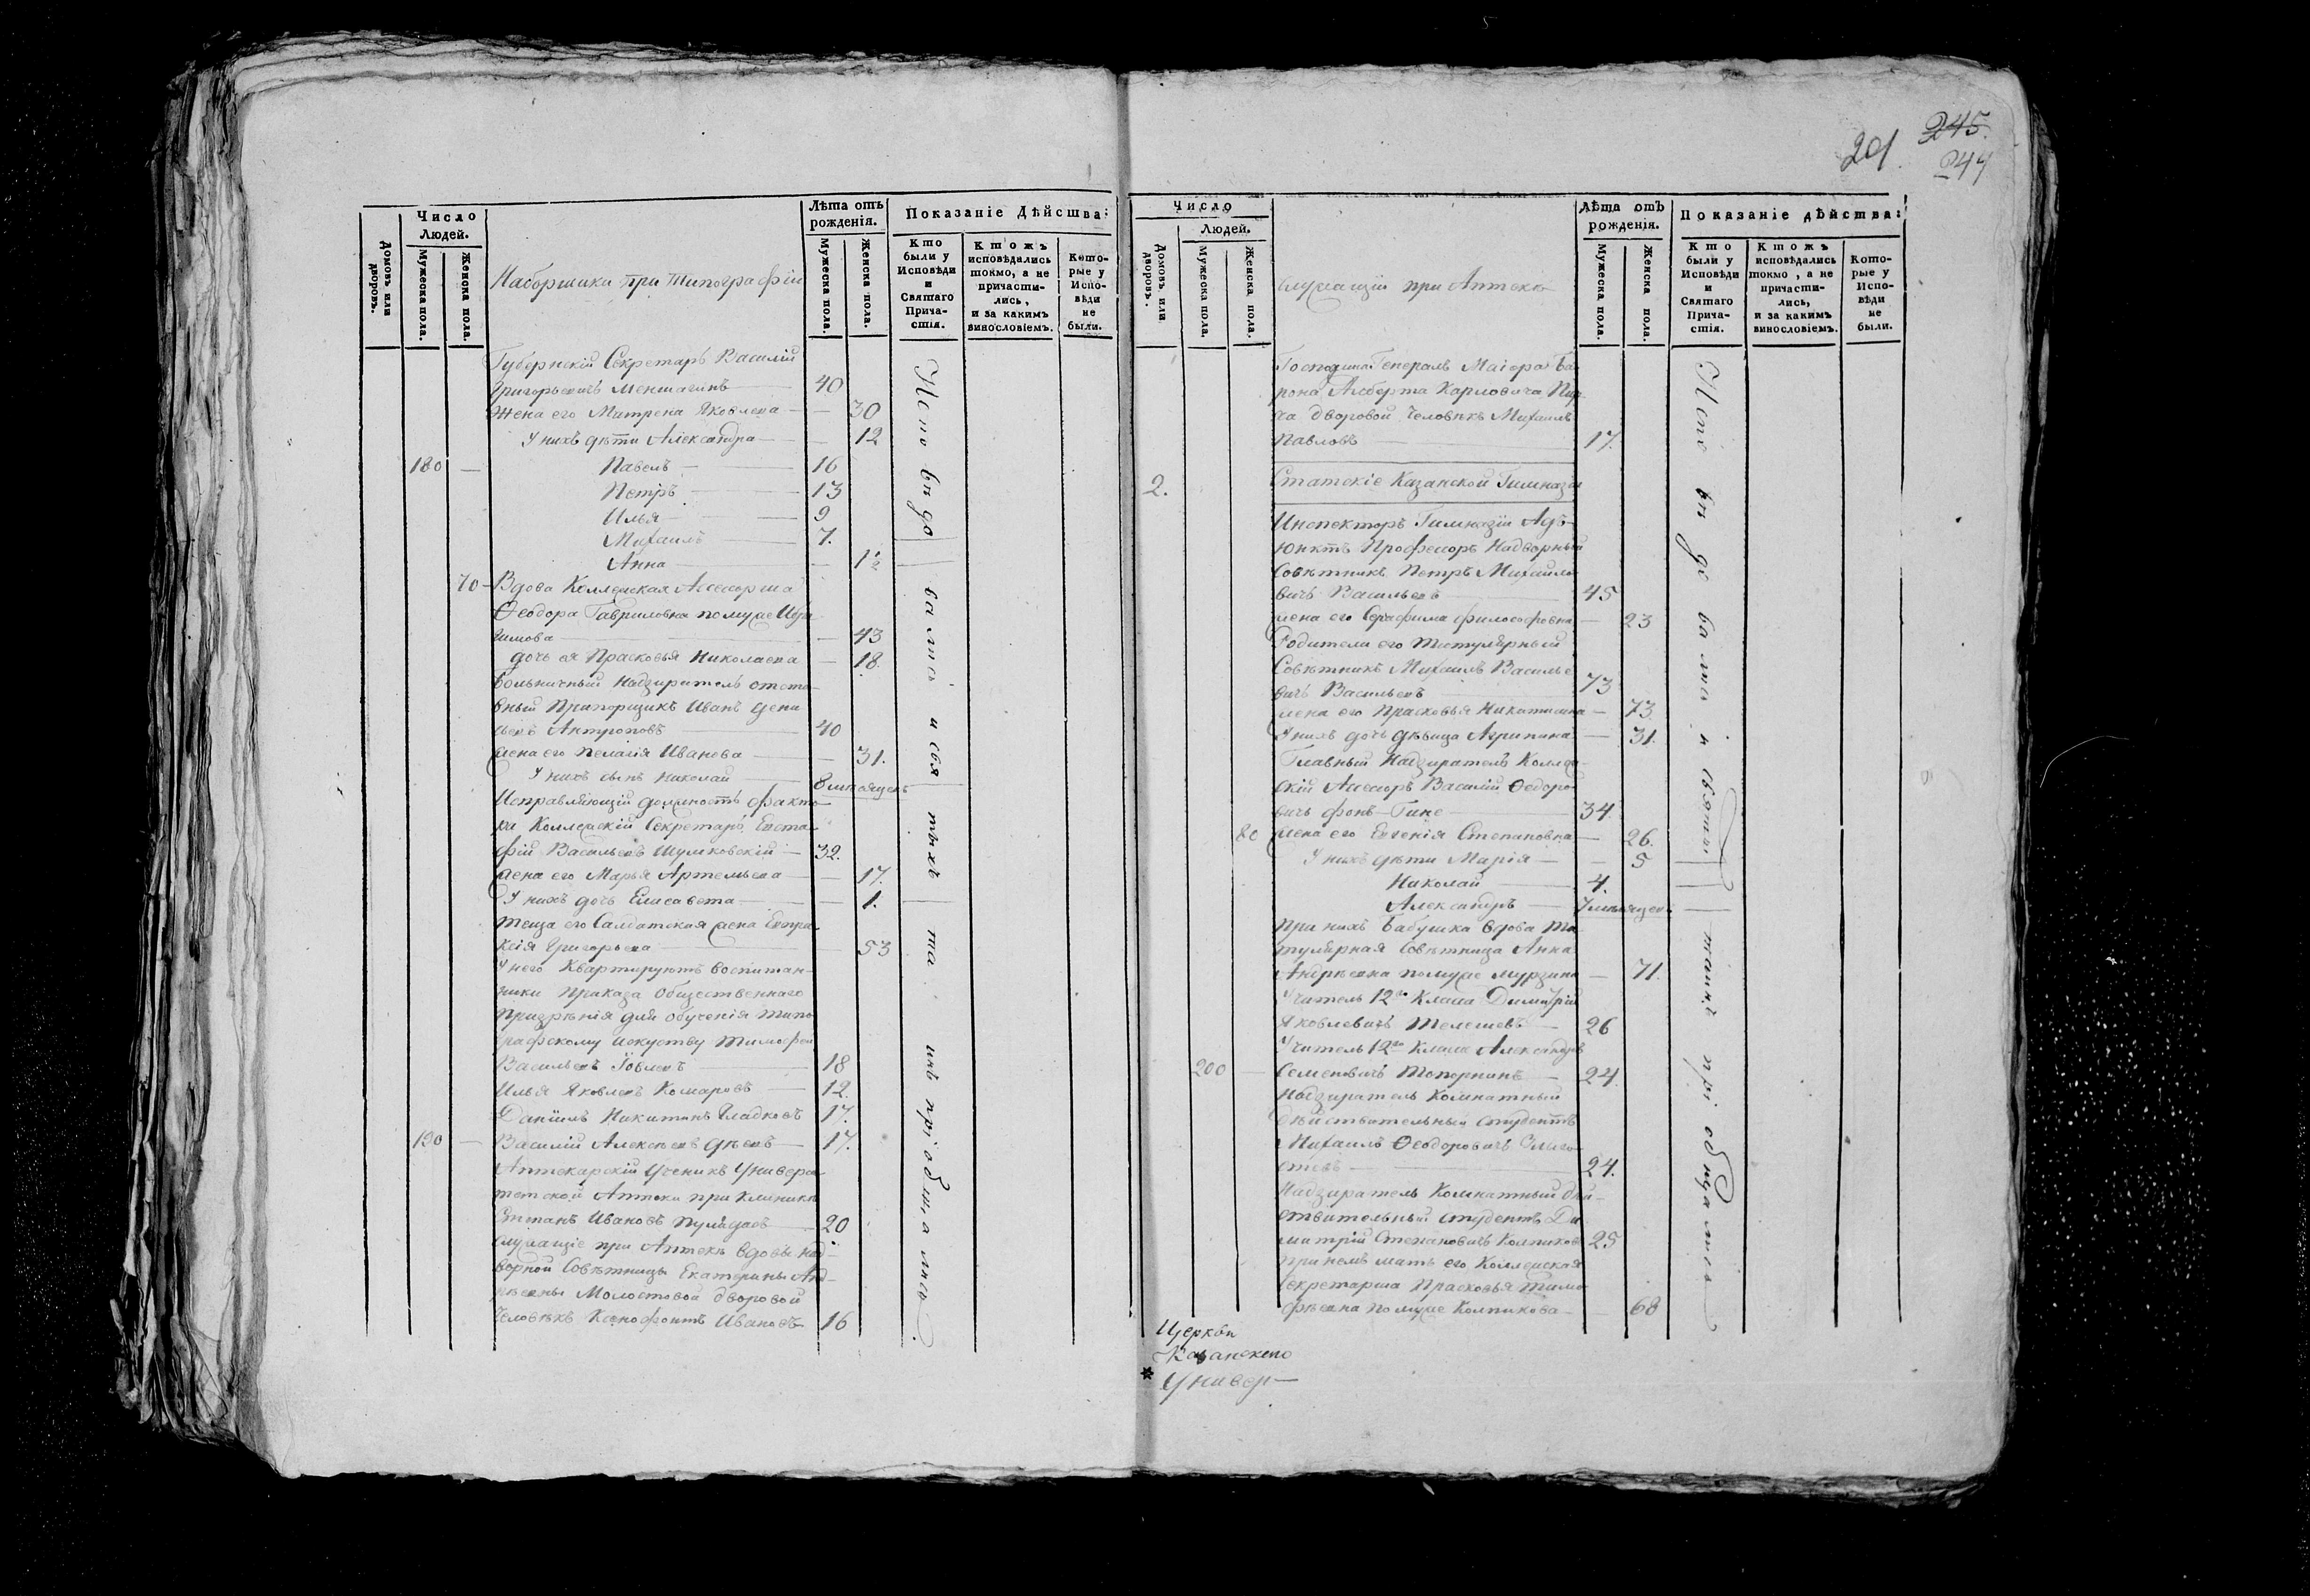 201
245.
244
Число
Людей.
Лѣта отъ
рожденія.
Показаніе Дѣйства:
Домовъ или
дворовъ.
Мужеска пола.
Женска пола.
Наборщики при типографіи
Мужеска пола.
Женска пола.
Кто
были у
Исповѣди
и
Святаго
Прича-
стія.
Ктожъ
исповѣдались
токмо, а не
причасти-
лись,
и за какимъ
винословіемъ.
Кото-
рые у
Испо-
вѣди
не
были.
Губернскій Секретарь Василій
Григорьевичъ Меншагинъ 40
Жена его Матрена Яковлева 30
У нихъ дѣти Александра 12
180 Павелъ 16
Петръ 13
Илья 9
Михаилъ 7.
Анна 1½
70 Вдова Коллежская Ассесорша
Ѳеодора Гавриловна по мужѣ
гимова 43
дочь ея Прасковья Николаева 18.
Больничный Надзиратель отста-
вный Прапорщикъ Иванъ Дени
сьевъ Антроповъ 40
жена его Пелагія Иванова 31.
У нихъ сынъ Николай 8 мѣсяцевъ
Исправляющій должность факто-
ра Коллежскій Секретарь Евста-
фій Васильевъ Шулковскій 32.
жена его Марья Артемьева 17.
У нихъ дочь Елисавета 1.
Теща его Салдатская жена Евпра-
ксія Григорьева 53
У него Квартируютъ воспитан-
ники Приказа Общественнаго
Призрѣнія для обученія типо
графскому искуству Тимофей
Васильевъ Іовлевъ 18
Илья Яковлевъ Комаровъ 12.
Даніилъ Никитинъ Гладковъ 17.
190 Василій Алексѣевъ Дѣевъ 17.
Аптекарскій Ученикъ Универси
тетской Аптеки при Клиникѣ
Степанъ Ивановъ 20
Служащіе при Аптекѣ вдовы Над-
ворной Совѣтницы Екатерины Анд-
рѣевны Молостовой дворовой
Человѣкъ Ксенофонтъ Ивановъ 16
Исповѣдовались и святыхъ таинъ пріобщались
Число
Людей.
Лѣта отъ
рожденія.
Показаніе дѣйства:
Домовъ или
дворовъ.
Мужеска пола.
Женска пола.
Служащій при Аптекѣ
Мужеска пола.
Женска пола.
Кто
были у
Исповѣди
и
Святаго
Прича-
стія.
Ктожъ
исповѣдались
токмо, а не
причасти-
лись,
и за какимъ
винословіемъ.
Кото-
рые у
Испо-
вѣди
не
были.
Господина Генералъ Маіора Ба
рона Алберта Карловича Пир
ха дворовой Человѣкъ Михаилъ
Павловъ 17.
2. Статскіе Казанской Гимназіи
Инспекторъ Гимназіи Адъ-
юнктъ Професоръ Надворный
Совѣтникъ Петръ Михайло
вичъ Васильевъ 45
жена его Серафима Философовна 23
Родители его Титулярный
Совѣтникъ Михаилъ Василье
вичъ Васильевъ 73
жена его Прасковья Никитишна 73.
У нихъ дочь дѣвица Агрипина 31.
Главный Надзиратель Коллеж-
скій Ассесоръ Василій Ѳедоро
вичъ фонъ-Гине 34.
80 жена его Евгенія Степановна 26.
У нихъ дѣти Марія 5
Николай 4.
Александръ 7 мѣсяцевъ
При нихъ Бабушка вдова Ти
тулярная Совѣтница Анна
Андрѣевна по мужѣ Мурзина 71.
Учитель 12го Класа Димитрій
Яковлевичъ Телешевъ 26
Учитель 12го Класа Александръ
200 Семеновичъ Топорнинъ 24.
Надзиратель Комнатный
дѣйствительный студентъ
Михаилъ Ѳеодоровичъ
24.
Надзиратель Комнатный дѣй-
ствительный студентъ Ди
митрій Степановичъ Колпиковъ 25
при немъ мать его Коллежская
Секретарша Прасковья Тимо
фѣевна по мужѣ Колпикова 68
Исповѣдовались и святыхъ таинъ пріобщались
Церкви
Казанскаго
* Универ-